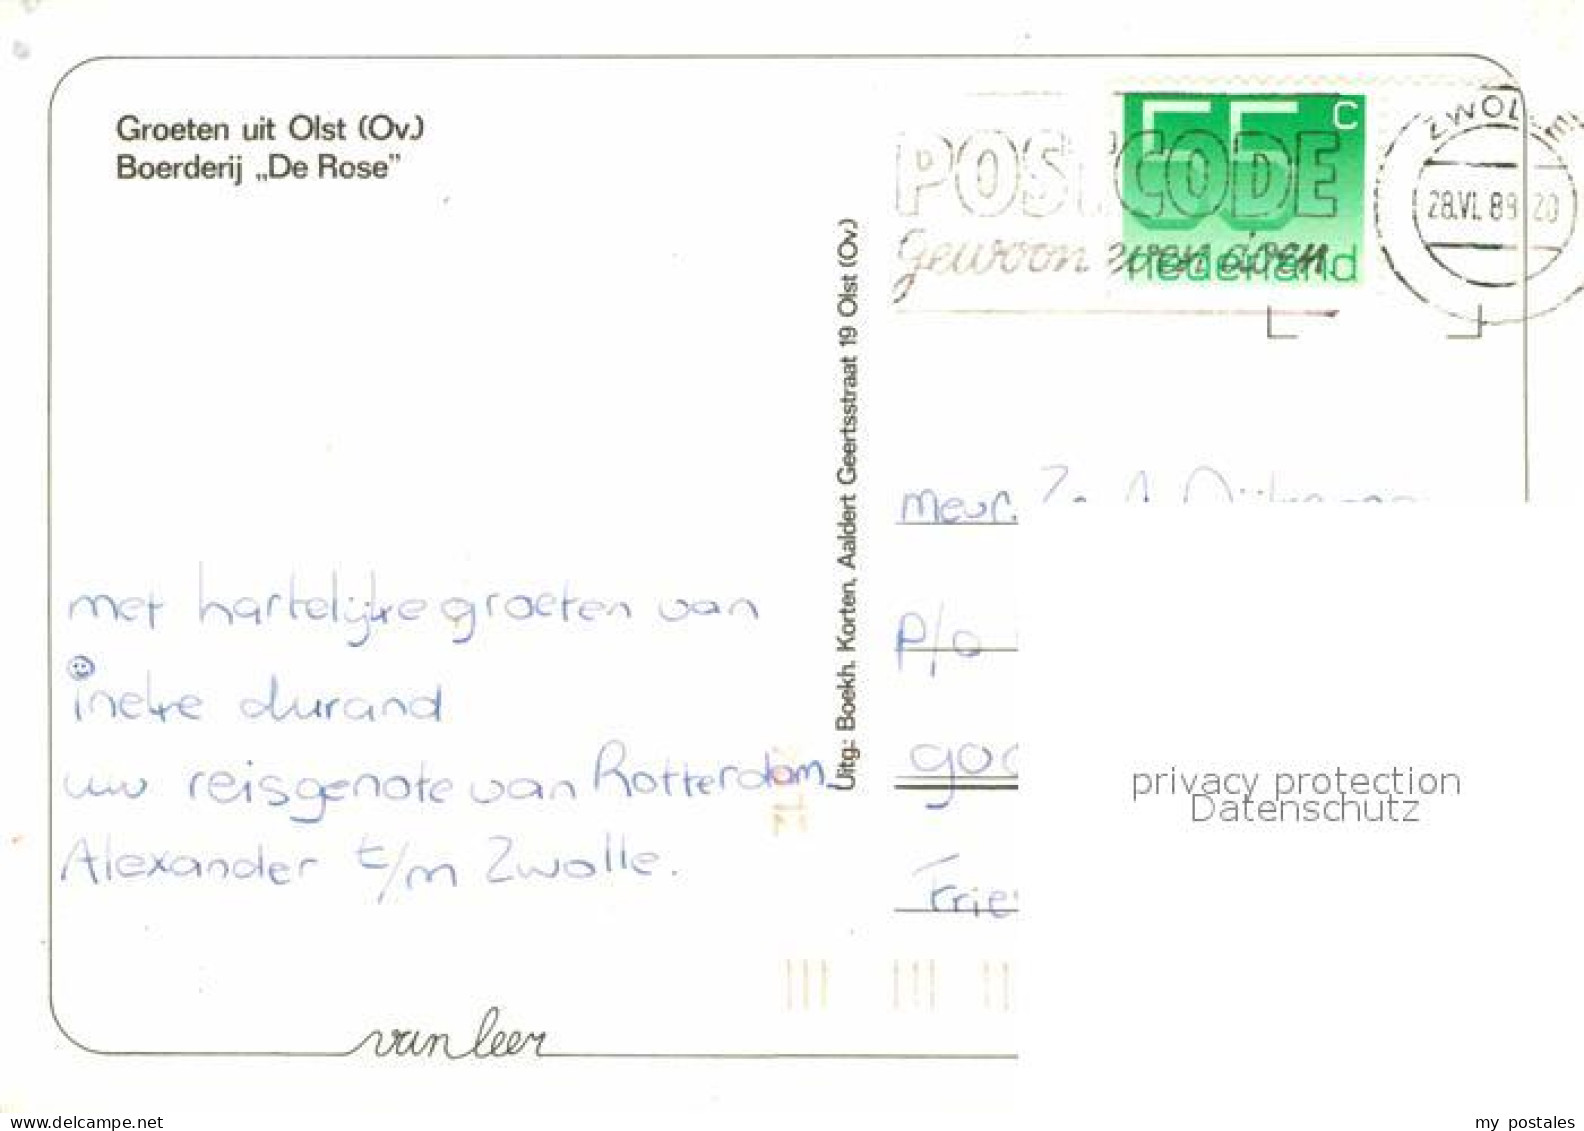 Groeten uit Olst (Ov.)
Boerderij „De Rose”
55 c
nederland
POSTCODE
gewoon even doen
ZWOLLE
28.VI.89 20
Uitg.: Boekh. Korten, Aaldert Geertsstraat 19 Olst (Ov.)
met hartelijke groeten van
ineke durand
uw reisgenote van Rotterdam
Alexander t/m Zwolle.
mevr.
p/a
van leer
privacy protection
Datenschutz
https://www.delcampe.net
my postales